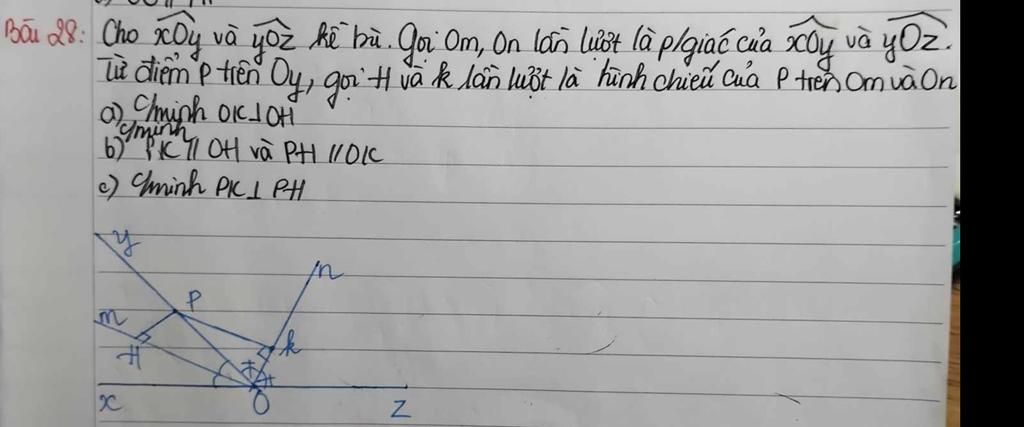 Bài 28: Cho xOy và yOz kề bù. Gọi Om, On lần lượt là p/giác của xOy và yOz.
Từ điểm P trên Oy, gọi H và K lần lượt là hình chiếu của P trên Om và On
a) C/minh OK⊥OH
c/minh
b) PK // OH và PH // OK
c) C/minh PK⊥ PH
y
n
P
m
H
K
x
O
z